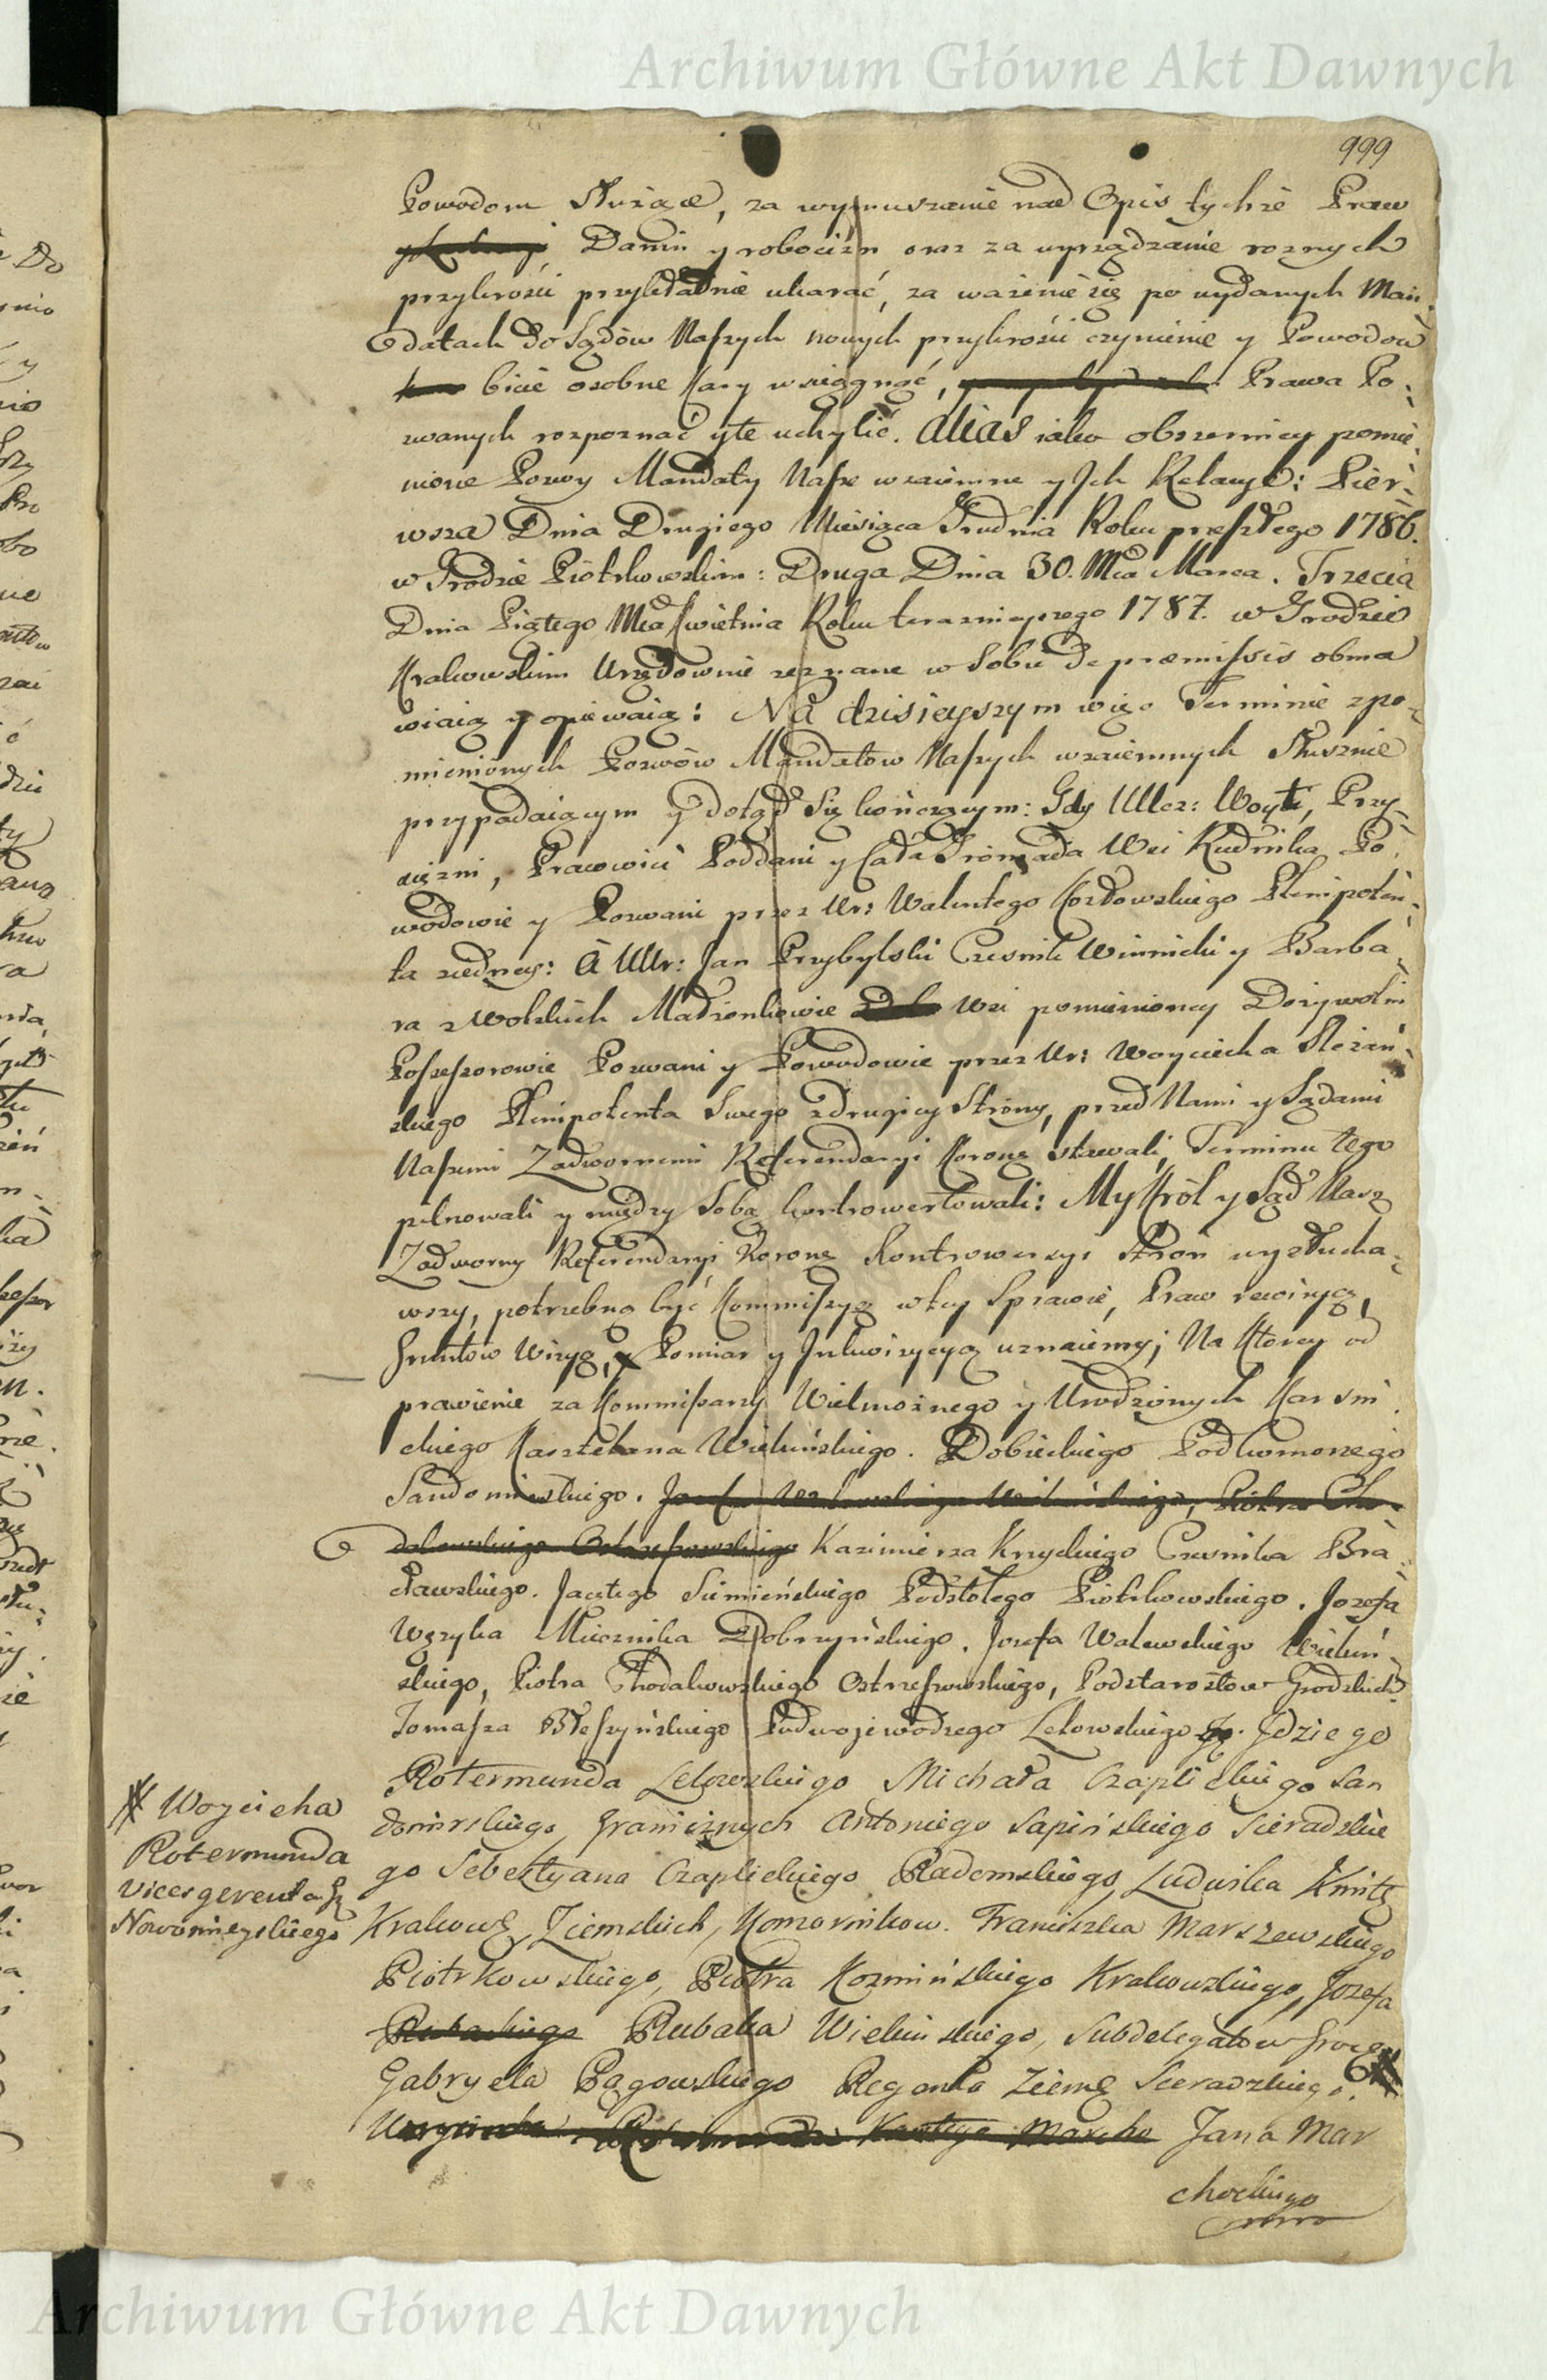 Archiwum Główne Akt Dawnych
999
Powodom służące, za wymuszanie nad Opis tychże Praw
Danin y robocizn oraz za wyrządzanie roznych
przykrości przykładnie ukarać, za ważenie się po wydanych Man-
datach do Sądów Naszych nowych przykrości czynienie y Powodow
bicie osobne kary wściągnąć, Prawa Po-
zwanych rozpoznać y te uchylić. Alias iako obszerniey pomie-
nione Pozwy Mandaty Nasze wzaiemne y Ich Relacye: Pier-
wsza Dnia Drugiego Miesiąca Grudnia Roku przeszłego 1786.
w Grodzie Piotrkowskim: Druga Dnia 30. Mca Marca. Trzecia
Dnia Piątego Mca Kwietnia Roku teraznieyszego 1787. w Grodzie
Krakowskim Urzędownie zeznane w Sobie de praemissis obma
wiaią y opiewaią: Na dzisieyszym więc Terminie z po-
mienionych Pozwów Mandatow Naszych wzaiemnych Słusznie
przypadaiącym y dotąd się kończącym: Gdy UUcz: Woyt, Przy-
siężni, Pracowici Poddani y Cała Gromada Wsi Kudnika Po-
wodowie y Pozwani przez Ur: Walentego Kozłowskiego Plenipoten-
ta zedney: à UUr: Jan Przybylski Czesnik Winnicki y Barba-
ra z Wolskich Małżonkowie Wsi pomienioney Dożywotni
Possessorowie Pozwani y Powodowie przez Ur: Woyciecha Sleżań-
skiego Plenipotenta Swego z drugiey Strony, przed Nami y Sądami
Naszemi Zadwornemi Referendaryi Koronę stawali, Terminu tego
pilnowali y między Sobą kontrowertowali: My Król y Sąd Nasz
Zadworny Referendaryi Koronę Kontrowersyi Stron wysłucha-
wszy, potrzebną być Kommissyą w tey Sprawie, Praw rewizyą,
Gruntow Wizyą, Pomiar y Inkwizycyą uznaiemy; Na Ktorey od
prawienie za Kommissarzy Wielmożnego y Urodzonych Karsni
ckiego Kasztelana Wieluńskiego. Dobieckiego Podkomorzego
Sandomirskiego.
Kazimierza Krzyckiego Czesnika Bra-
cławskiego. Jacętego Siemieńskiego Podstolego Piotrkowskiego. Jozefa
Wężyka Miecznika Dobrzyńskiego. Jozefa Walewskiego Wieluń-
skiego, Piotra Chodakowskiego Ostrzeszowskiego, Podstarostow Grodzkich
Tomasza Błeszyńskiego Podwojewodzego Lelowskiego Idziego
Rotermunda Lelowskiego Michała Czaplickiego San
domirskiego, Granicznych Antoniego Sapińskiego Sieradzkie
go Sebestyana Czaplickiego Radomskiego, Ludwika Kmitę
Krakowę, Ziemskich, Komornikow. Franciszka Marszewskiego
Piotrkowskiego, Piotra Kozmińskiego Krakowskiego, Jozefa
Rubaka Wieluńskiego, Subdelegatow
Gabryela Pągowskiego Regenta Ziemę Sieradzkiego.
Jana Mar
chockiego
Woyciecha
Rotermunda
Vicesgerenta
Nowomieyskiego
Archiwum Główne Akt Dawnych